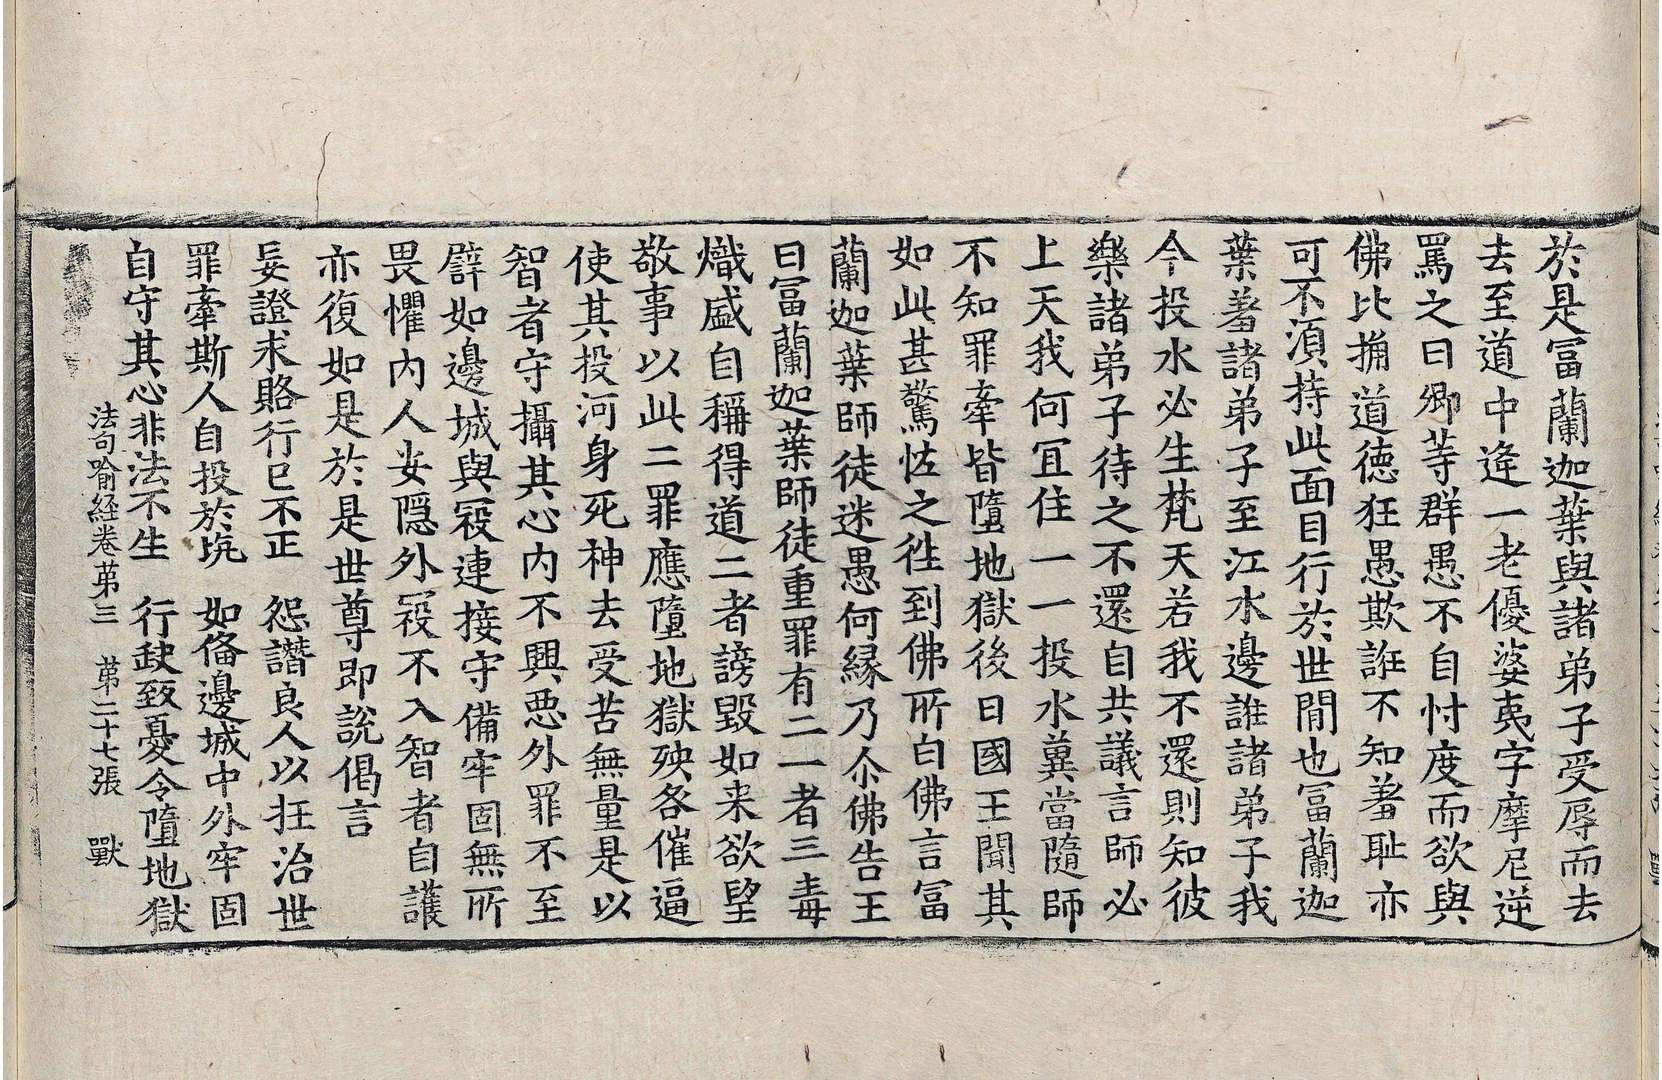 於是冨蘭迦葉與諸弟子受辱而去
去至道中逢一老優婆夷字摩尼逆
罵之曰卿等群愚不自忖度而欲與
佛比捔道德狂愚欺誑不知羞耻亦
可不湏持此面目行於世間也冨蘭迦
葉羞諸弟子至江水邊誑諸弟子我
今投水必生梵天若我不還則知彼
樂諸弟子待之不還自共議言師必
上天我何冝住一一投水冀當隨師
不知罪牽皆墮地獄後日國王聞其
如此甚驚恠之徃到佛所白佛言冨
蘭迦葉師徒迷愚何縁乃尒佛告王
曰冨蘭迦葉師徒重罪有二一者三毒
熾盛自稱得道二者謗毀如来欲望
敬事以此二罪應墮地獄殃咎催逼
使其投河身死神去受苦無量是以
智者守攝其心內不興惡外罪不至
譬如邊城與㓂連接守備牢固無所
畏懼內人安隱外㓂不入智者自護
亦復如是於是世尊即說偈言
妄證求賂行已不正　怨譖良人以抂治世
罪牽斯人自投於坑　如俻邊城中外牢固
自守其心非法不生　行缺致憂令墮地獄
法句喻経卷苐三　苐二十七張　戰